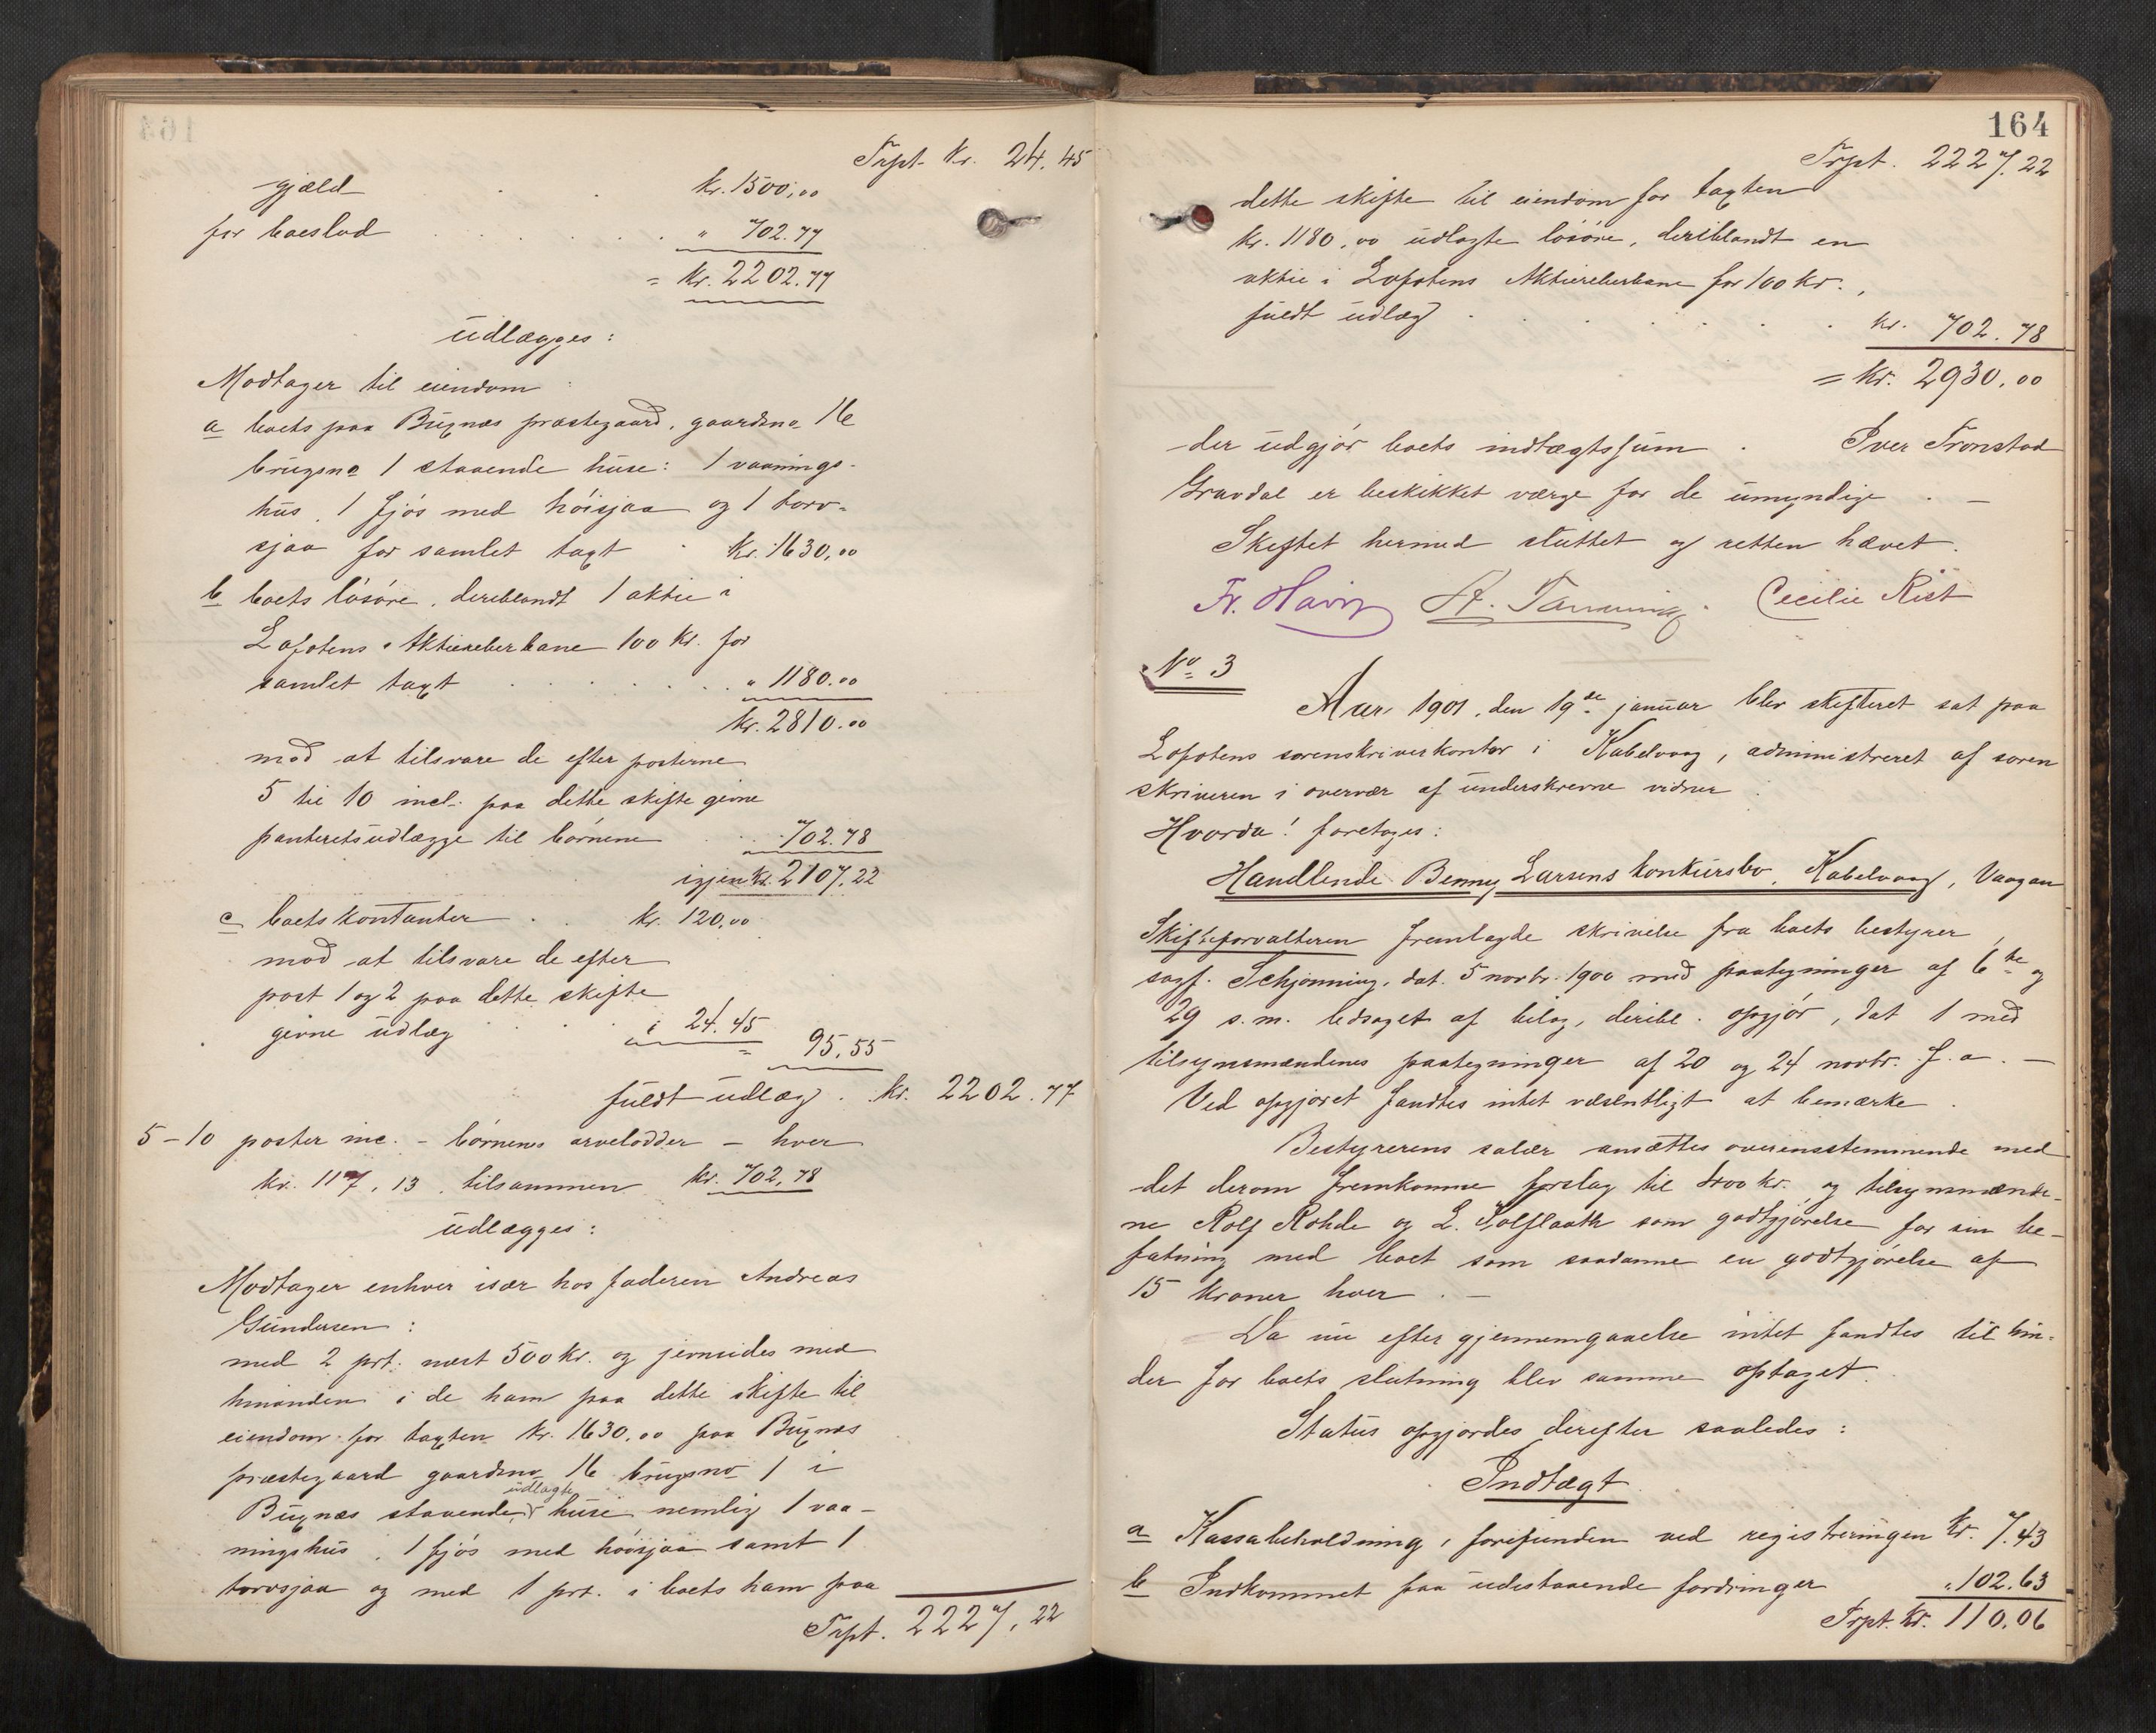 Trpt. kr. 24.45
gjæld . . kr. 1500,00
for boeslod . . . . . . " 702.77
= kr. 2202.77
udlægges:
Modtager til eiendom:
a boets paa Buxnæs præstegaard, gaardsno 16
brugsno 1 staaende huse: 1 vaanings-
hus, 1 fjøs med høisjaa og 1 torv-
sjaa for samlet taxt . kr. 1630,00
b boets løsøre, deriblandt 1 aktie i
Lofotens Aktiereberbane 100 kr. for
samlet taxt . . . . . . " 1180.00
kr. 2810.00
mod at tilsvare de efter posterne
5 til 10 incl. paa dette skifte givne
panteretsudlægge til børnene . . 702.78
igjen kr. 2107,22
c boets kontanter . . kr. 120,00
mod at tilsvare de efter
post 1 og 2 paa dette skifte
givne udlæg . . . . " 24.45
= 95,55
fuldt udlæg . kr. 2202.77
5-10 poster inc. - børnenes arvelodder - hver
kr. 117,13, tilsammen kr. 702,78
udlægges:
Modtager enhver især hos faderen Andreas
Gundersen:
med 2 prt. næst 500 kr. og jevnsides med
hinanden i de ham paa dette skifte til
eiendom for taxten kr. 1630,00 paa Buxnæs
præstegaard gaardsno 16 brugsno 1 i
udlagte
Buxnæs staaende huse nemlig 1 vaa-
ningshus, 1 fjøs med høisjaa samt 1
torvsjaa og med 1 prt. i boets ham paa
Trpt. 2227,22
164
Trpt. 2227.22
dette skifte til eiendom for taxten
kr. 1180,00 udlagte løsøre, deriblandt en
aktie i Lofotens Aktiereberbane for 100 kr.,
fuldt udlæg . . . . . . . kr. 702.78
= kr. 2930,00
der udgjør boets indtægtssum . Iver Tronstad
Gravdal er beskikket værge for de umyndige . —
Skiftet hermed sluttet og retten hævet.
Fr. Havig A. Tanning. Cecilie Rist
No 3
Aar 1901, den 19de januar blev skifteret sat paa
Lofotens sorenskriverkontor i Kabelvaag, administreret af soren
skriveren i overvær af underskrevne vidner.
Hvorda! foretoges:
Handlende Benny Larsens konkursbo, Kabelvaag, Vaagan
Skifteforvalteren fremlagde skrivelse fra boets bestyrer,
sagf. Schjønning, dat. 5 novbr. 1900 med paategninger af 6te og
29 s.m. ledsaget af bilag, deribl. opgjør, dat 1 med
tilsynsmændenes paategninger af 20 og 24 novbr. f.a. —
Ved opgjøret fandtes intet væsentligt at bemærke.
Bestyrerens salær ansættes overensstemmende med
det derom fremkomne forslag til 400 kr. og tilsynsmænde-
ne Rolf Rohde og L. Solflaath som godtgjørelse for sin be-
fatning med boet som saadanne en godtgjørelse af
15 kroner hver . —
Da nu efter gjennemgaaelse intet fandtes til hin-
der for boets slutning blev samme optaget.
Status opgjordes derefter saaledes:
Indtægt.
a Kassabeholdning, forefunden ved registreringen kr. 7.43
b Indkommet paa udestaaende fordringer " 102.63
Trpt. kr. 110,06